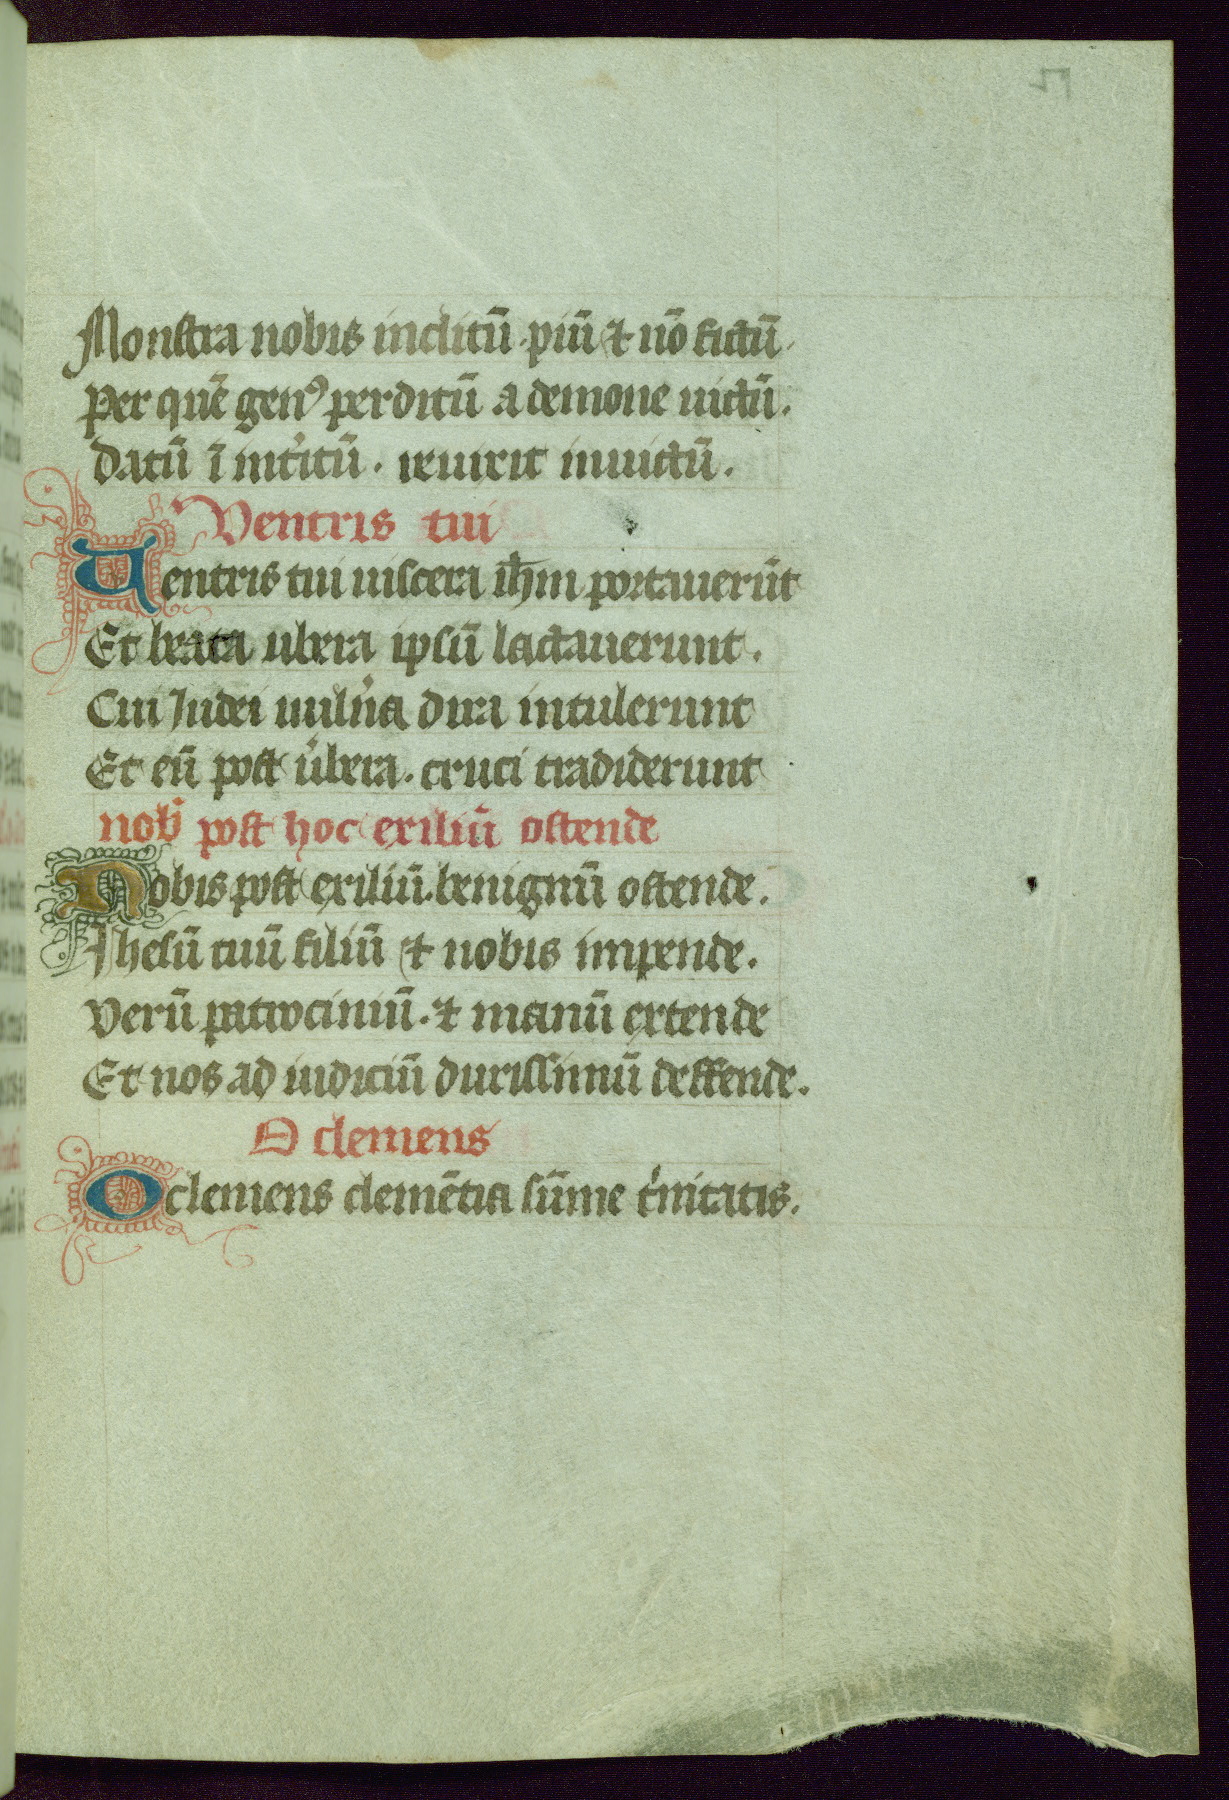 Monstra nobis inclitū . piū ⁊ nō fictū .
Per quē genꝰ perditū a demone uictū .
Datū ī int'itū . reuixit inuictū .
Ventris tui
Uentris tui uiscera ih̄m portauerūt
Et beata ubera ipsū lactauerunt .
Cui Iudei uuln'a dura intulerunt
Et eū post u'bera . cruci tradiderunt
nob' post hoc exiliū ostende
Nobis post exiliū . benignū ostende .
Ihesū tuū filiū ⁊ nobis impende .
Verū patrociniū . ⁊ manū extende
Et nos ad iudiciū durissimū deffende .
O clemens
O clemens clemētia sūme t'nitatis .